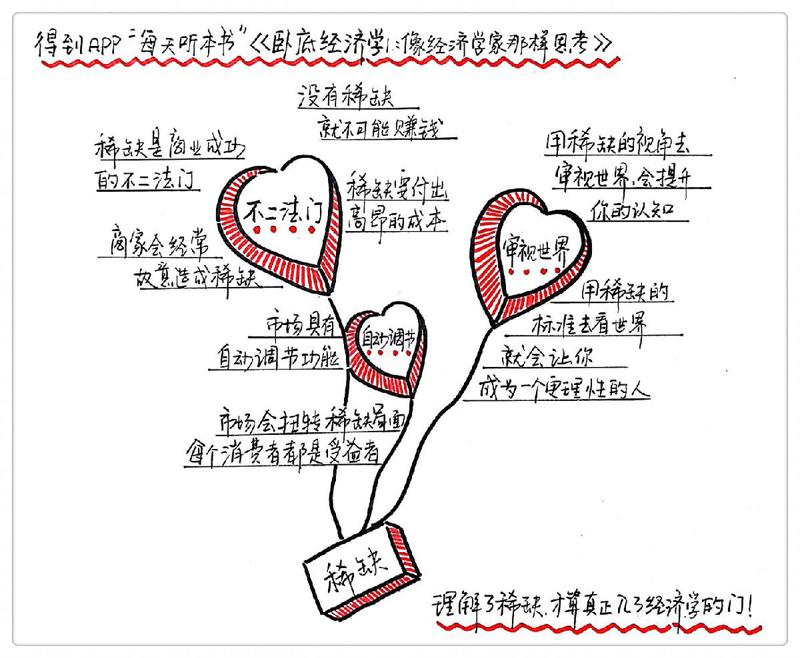 得到APP"每天听本书"《卧底经济学1:像经济学家那样思考》
没有稀缺
就不可能赚钱
稀缺是商业成功
的不二法门
不二法门
稀缺要付出
高昂的成本
商家会经常
故意造成稀缺
用稀缺的视角去
审视世界,会提升
你的认知
审视世界
用稀缺的
标准去看世界
就会让你
成为一个更理性的人
市场具有
自动调节功能
自动调节
市场会扭转稀缺局面
每个消费者都是受益者
稀缺
理解了稀缺,才算真正入了经济学的门!